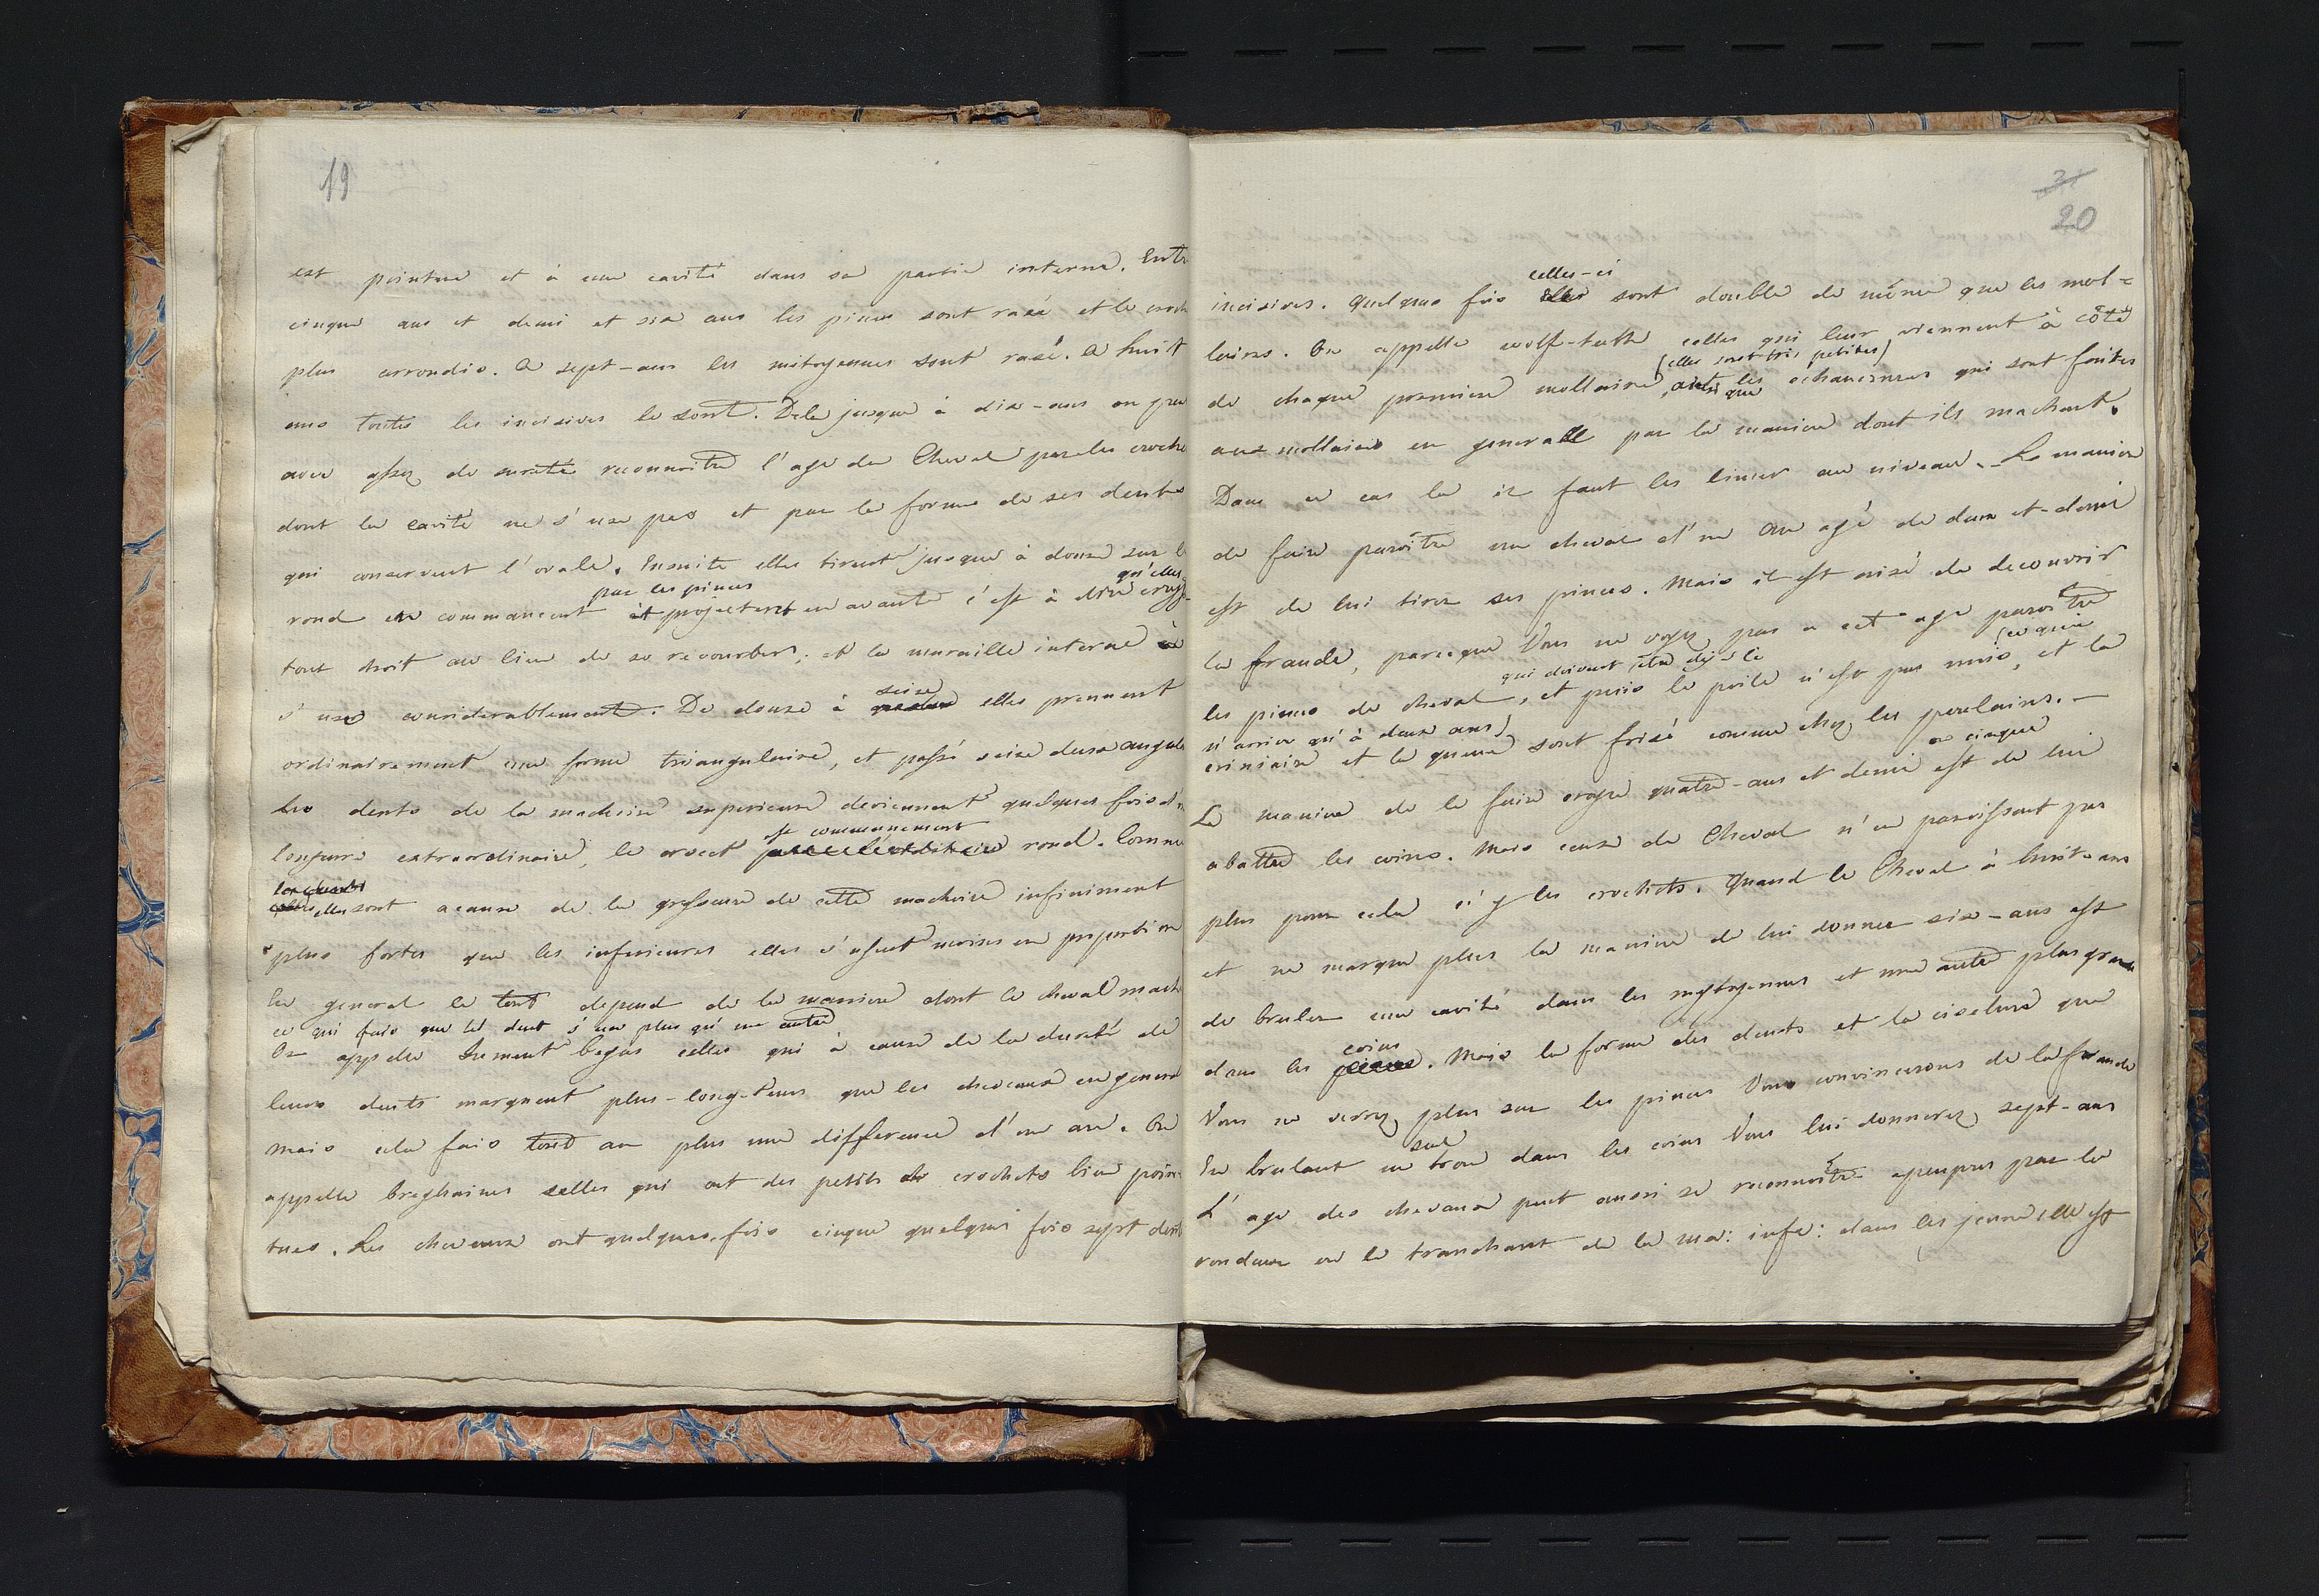 19
est pointue et à une cavité dans sa partie interne. Entre
cinque ans et demi et six ans les pinces sont rasé et le croch
plus arrondis. A sept-ans les mitoyennes sont rasé. A huit
ans toutes les incisives le sont. Dela jusque à dix-ans on peu
avec assez de sureté reconnoitre l'age du Cheval par les croche
dont la cavité ne s'use pas et par la forme de ses dents
qui conservent l'ovale. Ensuite elles tirent jusque à douse sur le
par les pinces qu'elles
rond en commancent à projecter en avant c'est à dire
tout droit au lieu de se recourber; et la muraille interne
seise
s'use considerablement. De douse à elles prennent
ordinairement une forme triangulaire, et passé seise deux angul
Les dents de la machoire superieure deviennent quelques fois d'u
est communement
longueure extraordinaire, le crocet rond. Comme
les dents
elles sont acause de la grosseure de cette machoire infiniment
plus fortes que les inferieures elles s'usent moins en proportion
En general le tout depend de la maniere dont le cheval mach
ce qui fais que tel dent s'use plus qu'une autre
On appelle Jument begue celles qui à cause de la dureté de
leurs dents marquent plus-long-tems que les chevaux en general
mais cela fais tout au plus une difference d'un an. On
appelle breghaines celles qui ont des petits crochets bien poin
tues. Les chevaux ont quelques-fois cinque quelques fois sept dents
31
20
celles-ci
incisives. Quelques fois elles sont double de même que les mol-
laires. On appelle wolf-teeth celles qui leur viennent à côté
(elles sont très petites)
de chaque premiere mollaire, ainsi que les échancrures qui sont faites
aux mollaires en generall par la maniere dont ils machent.
Dans ce cas la il faut les limer au niveau. La maniere
de faire paroître un cheval d'un an agé de deux et-demi
est de lui tirer ses pinces. Mais il est aisé de decouvrir
la fraude, parceque Vous ne voyez pas a cet age paroître
qui doivent être déjà là (ce qui
les pinces de cheval, et puis le poile n'est pas mis, et la
n'arrive qu'à deux ans)
criniaire et la queue sont frisé comme chez les poulains. —
ou cinque
La maniere de le faire croire quatre-ans et demi est de lui
abattre les coins. Mais ceux de Cheval n'en paroissent pas
plus pour cela ni les crochets. Quand le Cheval à huit-ans
et ne marque plus la maniere de lui donner six-ans est
de bruler une cavité dans les mytoyennes et une autre plus grande
coins
dans les pinces. Mais la forme des dents et la ciselure que
Vous ne verrez plus sur les pinces Vous convincerons de la fraude
seul
En brulant un trou dans les coins Vous lui donnerez sept-ans
L'age des chevaux peut aussi se reconnoître apeupres par la
rondeur ou le tranchant de la ma: infe: dans les jeunes elle est